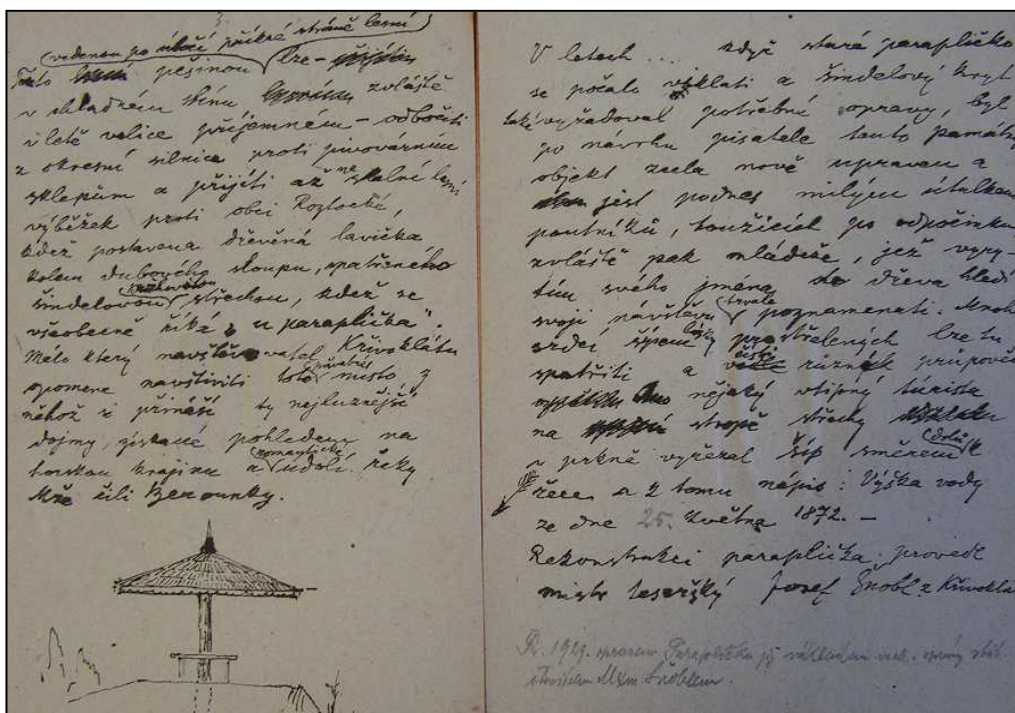 3.
(vedenou po úbočí příkré stráně lesní)
Touto pěšinou lze
v chladném stínu zvláště
v letě velice příjemném – odbočiti
z okresní silnice proti pivovárním
sklepům a přijíti až na skalní lesní
výběžek proti obci Roztocké,
kdež postavena dřevěná lavička
kolem dubového sloupu, opatřeného
šindelovou střechou, kdež se
všeobecně říká „u paraplíčka".
Málo který navštěvovatel Křivoklátu
opomene navštíviti toto místo z
něhož i přináší ty nejluznější
dojmy, získané pohledem na
horskou krajinu a romantické údolí řeky
Mže čili Berounky.
V letech ... když staré paraplíčko
se počalo viklati a šindelový kryt
také vyžadoval potřebné opravy, byl
po návrhu pisatele tento památný
objekt zcela nově upraven a
jest podnes milým útulkem
poutníků, toužících po odpočinku,
zvláště pak mládeže, jež vyry-
tím svého jména do dřeva hledí
svoji návštěvu trvale poznamenati. Mnoho
srdcí šípem lásky prostřelených lze tu
spatřiti a čísti různých průpověd
nějaký vtipný turista
na stropě střechy
v prkně vyřezal šíp směrem dolů k
řece a k tomu nápis: Výška vody
ze dne 25. května 1872. –
Rekonstrukci paraplíčka provedl
mistr tesařský Josef Šnobl z Křivoklátu
R. 1929. opraveno Paraplíčko